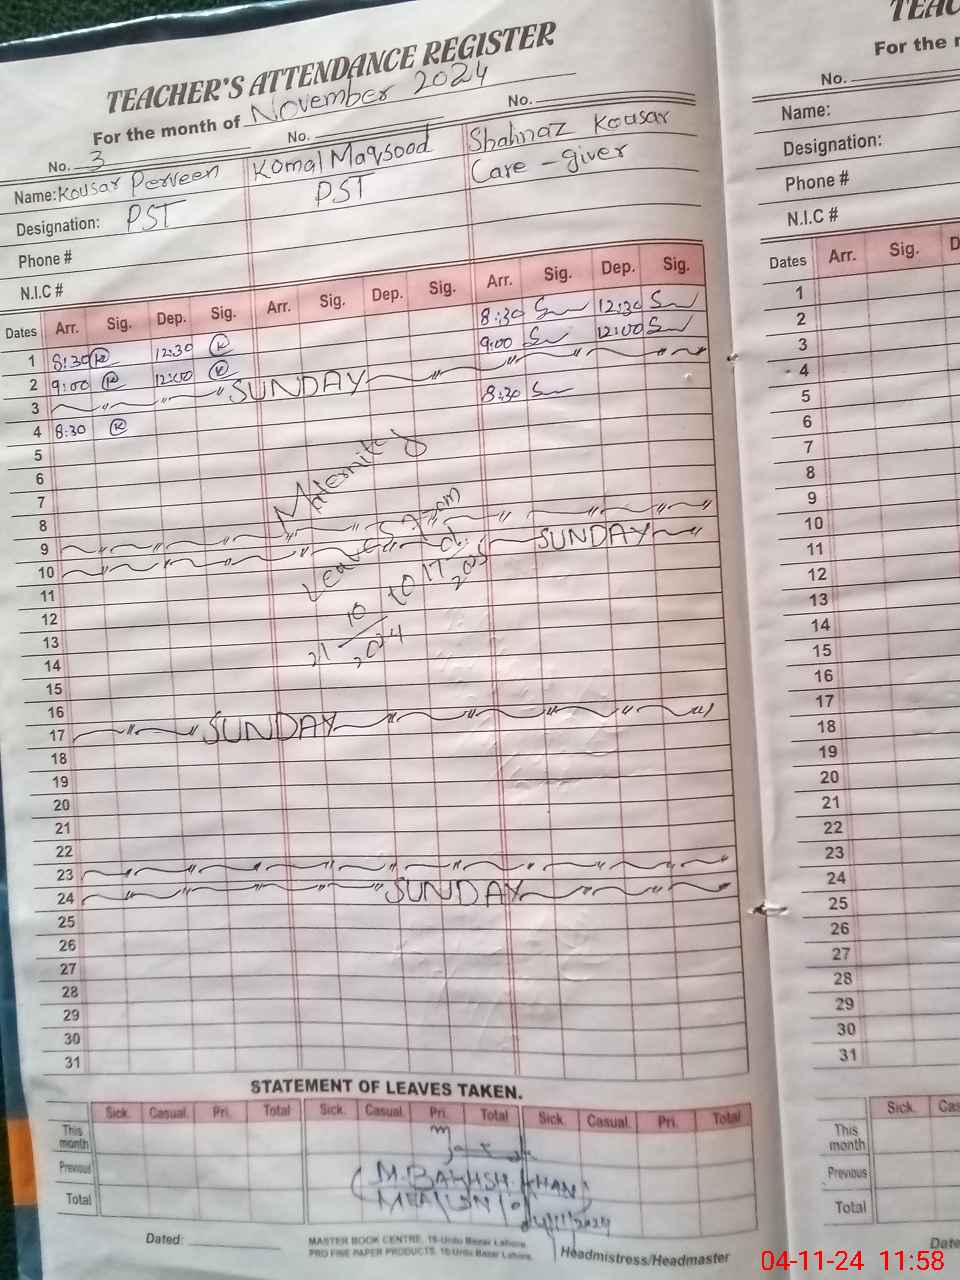 TEACHER'S ATTENDANCE REGISTER
For the month of November 2024
No. 3 No. No.
Name: Kousar Perveen Komal Maqsood Shahnaz Kousar
Designation: PST PST Care - giver
Phone #
N.I.C #
Dates Arr. Sig. Dep. Sig. Arr. Sig. Dep. Sig. Arr. Sig. Dep. Sig.
1 8:30 R 12:30 R 8:30 12:30
2 9:00 R 12:00 R 9:00 12:00
3 SUNDAY
4 8:30 R 8:30
5
6
7
8
9
10 SUNDAY
11
12
13
14
15
16
17 SUNDAY
18
19
20
21
22
23
24 SUNDAY
25
26
27
28
29
30
31
Maternity
Leaves from
21/10/2024 to 17
STATEMENT OF LEAVES TAKEN.
Sick. Casual. Pri. Total Sick. Casual. Pri. Total Sick. Casual. Pri. Total
This month
Previous
Total
(M. BAKHSH KHAN)
Dated:
MASTER BOOK CENTRE, 16-Urdu Bazar Lahore.
PRO FINE PAPER PRODUCTS, 16-Urdu Bazar Lahore.
Headmistress/Headmaster
TEAC
For the m
No.
Name:
Designation:
Phone #
N.I.C #
Dates Arr. Sig. D
1
2
3
4
5
6
7
8
9
10
11
12
13
14
15
16
17
18
19
20
21
22
23
24
25
26
27
28
29
30
31
Sick. Cas
This month
Previous
Total
Date
04-11-24 11:58